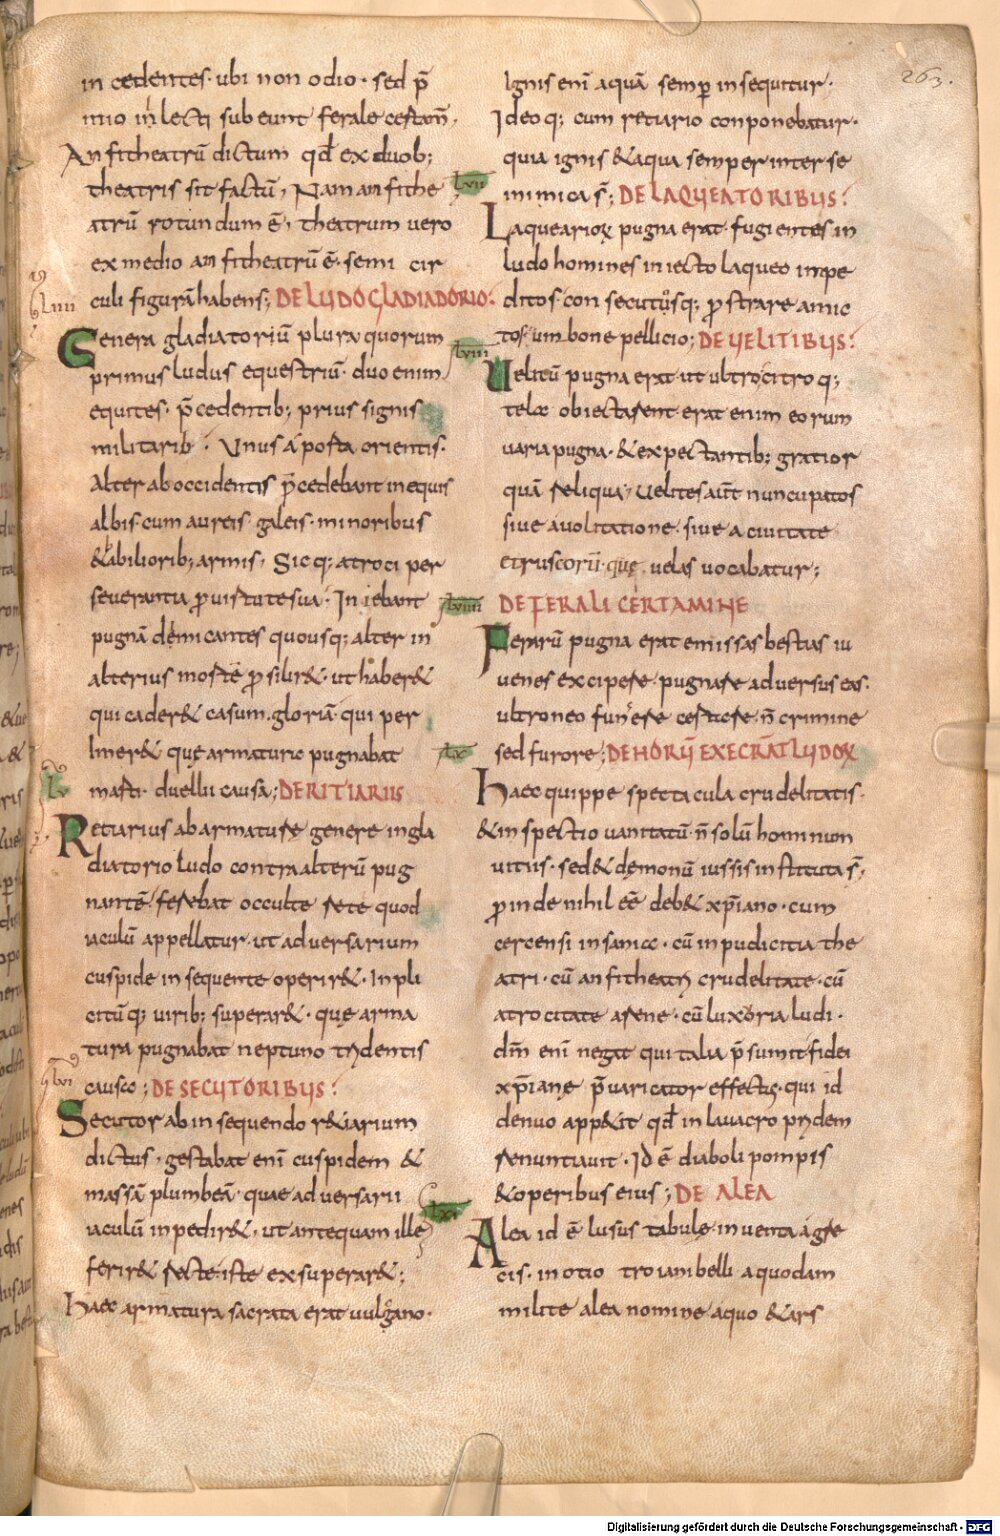 in cedentes· ubi non odio· sed p̄
mio inlecti subeunt ferale certam̄·
Anfitheatrū dictum qd̄ ex duob;
theatris sit factū, Nam anfithe
atrū rotundum ē, theatrum uero
ex medio anfitheatrū ē· semi cir
culi figurā habens; DE LUDO GLADIADORIO·
liiii
Genera gladiatoriū plura quorum
primus ludus equestriū· duo enim
equites· p̄cedentib; prius signis
militarib· Unus á porta orientis·
Alter ab occidentis p̄cedebant in equis
albis· cum aureis· galeis· minoribus
&abiliorib; armis· Sicq; atroci per
seuerantia pro uirtute sua· Iniebant
pugnā demicantes quousq; alter in
alterius morte prosilir&· ut haber&
qui cader& casum· gloriā qui per
imer& que armaturę pugnabat
lv
marti duellii causa; DE RITIARIIS
Retiarius ab armature genere in gla
diatorio ludo contra alterū pug
nantē· ferebat occulte rete quod
iaculū appellatur· ut aduersarium
cuspide insequente operir&· Inpli
citūq; uirib; superar&· que arma
tura pugnabat neptuno tridentis
lvi
causa; DE SECUTORIBUS·
Secutor ab insequendo r&iarium
dictus· gestabat enī cuspidem &
massā plumbeā· quae aduersarii
iaculū inpedir&· ut antequam ille
ferir& rete· iste exsuperar&;
Haec armatura sacrata erat uulgano·
263.
Ignis enī aquā semp̄ insequitur·
Ideoq; cum retiario conponebatur·
quia ignis &aqua semper inter se
lvii
inimica s̄; DE LAQUEATORIBUS·
Laqueariorꝝ pugna erat· fugientes in
ludo homines iniecto laqueo inpe
ditos· consecutosq; prostrare amic
tos· umbone pellicio; DE UELITIBUS·
lviii
Uelitū pugna erat· ut ultro citroq;
tela obiectarent· erat enim eorum
uaria pugna· &expectantib; gratior
quā reliqua· Uelites aūt nuncupatos
siue á uolitatione· siue a ciuitate
etruscorū· que uelas uocabatur;
lviiii DE FERALI CERTAMINE
Ferarū pugna erat emissas bestias iu
uenes excipere· pugnare aduersus eas·
ultroneo funere certare· n̄ crimine
lx sed furore; DE HORŪ EXECRĀT LUDOꝜ
Haec quippe spectacula crudelitatis·
&inspectio uanitatū· n̄ solū hominum
uitiis· sed& demonū iussis instituta s̄,
proinde nihil eē deb& xp̄iano· cum
cercensi insania· cū inpudicitia the
atri· cū anfitheatri crudelitate· cū
atrocitate arene· cū luxoria ludi·
dm̄ enī negat qui talia p̄sumit fidei
xp̄iane p̄uaricator effectus· qui id
denuo app&it qd̄ in lauacro pridem
renuntiauit· Id ē diaboli pompis
&operibus eius; DE ALEA
lxi
Alea id ē lusus tabulę· inuenta á gre
cis· in otio troiani belli a quodam
milite alea nomine· a quo &ars
Digitalisierung gefördert durch die Deutsche Forschungsgemeinschaft - DFG